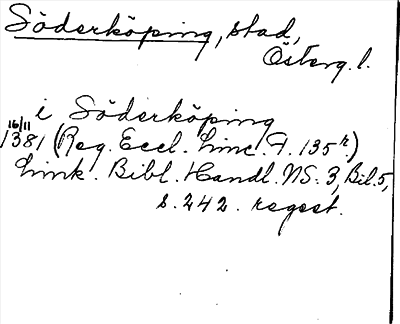 Söderköping, stad,
Österg. l.
i Söderköping
16/11
1381 (Reg. Eccl. Linc. F. 135r)
Link. Bibl. Handl. NS. 3, Bil. 5,
s. 242. regest.